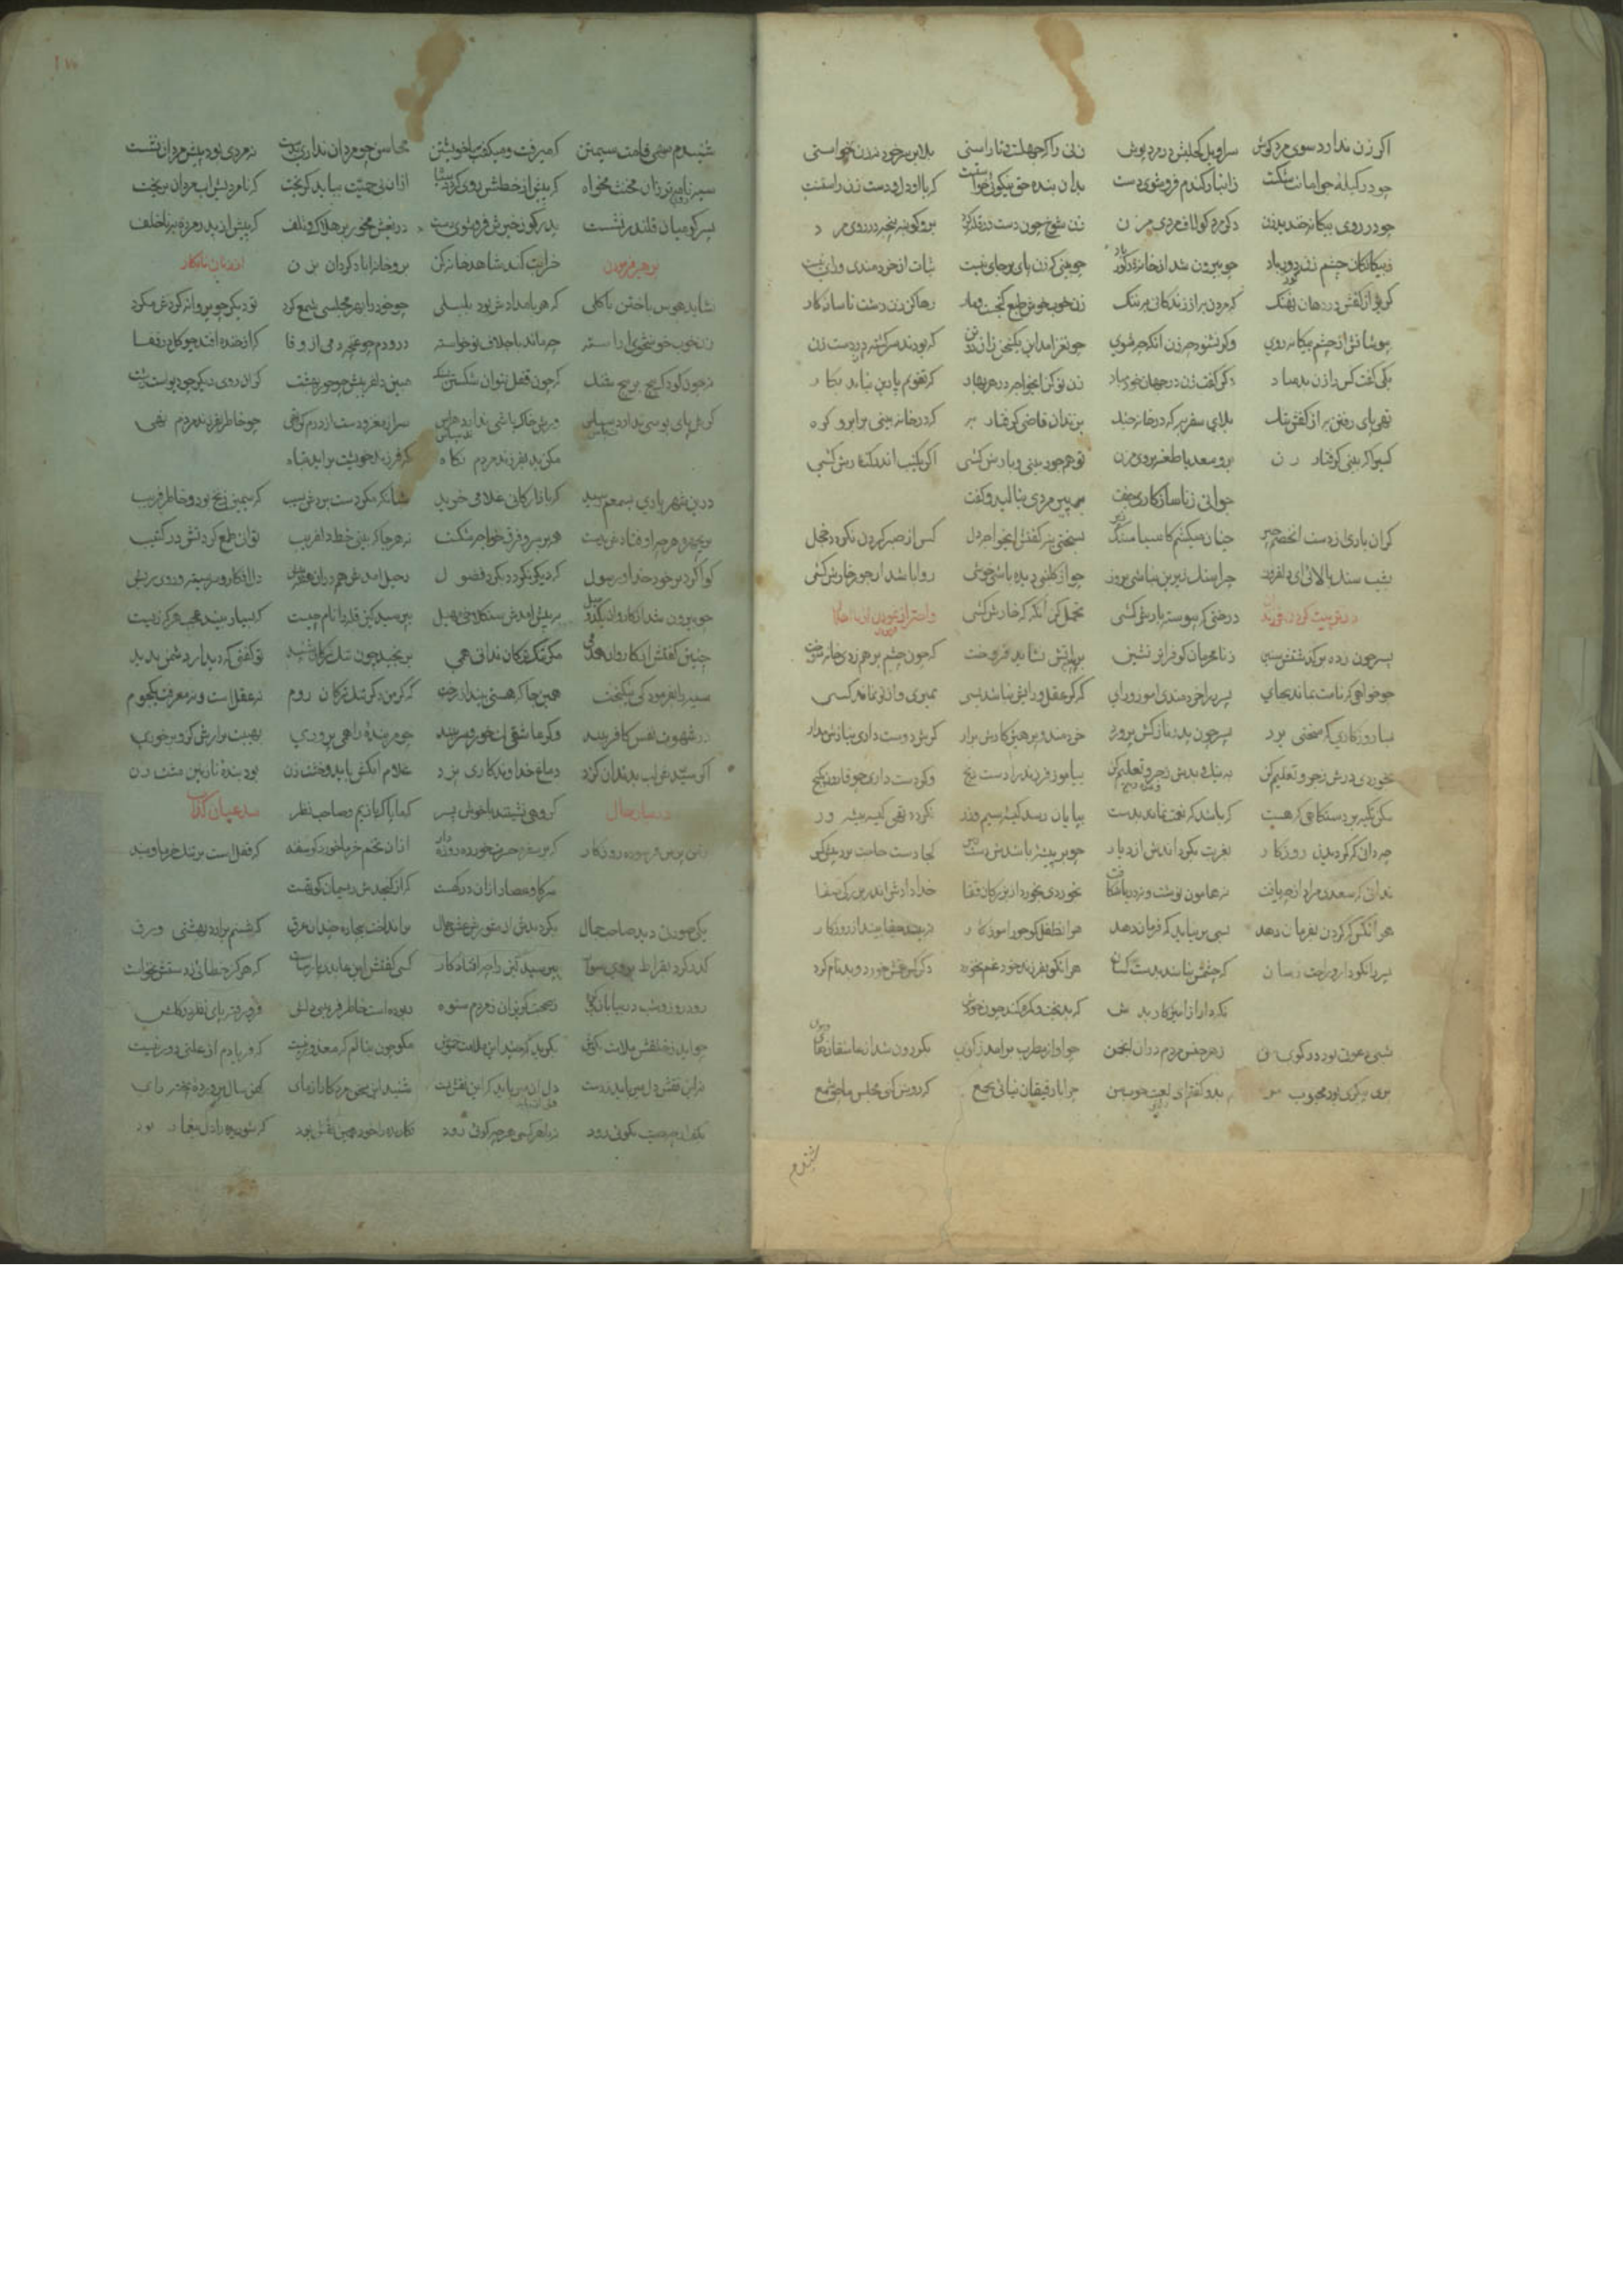 اکر زن ندارد سوی مرد کوش سراویل کحلیش در مرد پوش زنی را که جهلست و ناراستی بلا بر سر خود نه زن خواستی
چو در کیله جو امانت شکست از انبار کندم فرو شوی دست بدان بنده حق نیکوئی خواست که با او دل و دست زن راست
چو در روی بیکانه خندید زن دکر مرد کو لاف مردی مزن زن شوخ چون دست در قلیه کرد برو کو بنه پنجه در روی مرد
ز بیکانکان چشم زن دور باد چو بیرون شد از خانه در کور باد چو بینی که زن پای بر جای نیست ثبات از خردمندی و رای نیست
کریز از کفش در دهان نهنک که مردن به از زندکانی به ننک زن خوب خوش طبع کنجست و مار رها کن زن زشت ناسازکار
بپوشانش از چشم بیکانه روی وکر نشنود چه زن انکه چه شوی چو نغز امد این یک سخن زان دو تن که بودند سرکشته از دست زن
یکی کفت کس را زن بد مباد دکر کفت زن در جهان خود مباد زن نو کن ای خواجه در هر بهار که تقویم پارین نیاید بکار
تهی پای رفتن به از کفش تنک بلای سفر به که در خانه جنک بزندان قاضی کرفتار به که در خانه بینی بر ابرو کره
کسی را که بینی کرفتار زن برو سعدیا طعنه بر وی مزن تو هم جور بینی و بارش کشی اکر یکشب اندر کنارش کشی
جوانی ز ناسازکاری جفت بر پیرمردی بنالید و کفت
کران باری از دست این خصم چیر چنان میکشم کاسیا سنک زیر بسختی بنه کفتش ای خواجه دل کس از صبر کردن نکردد خجل
بشب سنک بالائی ای چرا سنک زیرین نباشی بروز چو از کلبنی دیده باشی خوشی روا باشد ار جور خارش کشی
درختی که پیوسته بارش کشی تحمل کن انکه که خارش کشی
پسر چون ز ده بر کذشتش سنین ز نامحرمان کو فراتر نشین بر پنبه اتش نشاید فروخت که چون چشم بر هم زدی خانه سوخت
چو خواهی که نامت بماند بجای پسر را خردمندی اموز و رای که کر عقل و رایش نباشد بسی بمیری و از تو نماند کسی
بسا روزکاری که سختی برد پسر چون پدر نازکش پرورد خردمند و پرهیزکارش برار کرش دوست داری بنازش مدار
بخوردی درش زجر و تعلیم کن به نیک و بدش وعده و بیم کن بیاموز فرزند را دست رنج وکر دست داری چو قارون بکنج
مکن تکیه بر دستکاهی که هست که باشد که نعمت نماند بدست بپایان رسد کیسه سیم و زر نکردد تهی کیسه پیشه ور
چه دانی که کردیدن روزکار بغربت بکرداندش از دیار چو بر پیشه باشدش دست رس کجا دست حاجت برد پیش کس
ندانی که سعدی مراد از چه یافت نه هامون نوشت و نه دریا شکافت بخوردی بخورد از بزرکان قفا خدا دادش اندر بزرکی صفا
هر انکس که کردن بفرمان نهد بسی بر نیاید که فرمان دهد هر ان طفل کو جور اموزکار نبیند جفا بیند از روزکار
پسر را نکو دار و راحت رسان که چشمش نباشد بدست کسان هر انکو بفرزند خود غم نخورد دکر کس غمش خورد و بدنام کرد
نکه دار از امیزکار بدش که بدبخت و کمره کند چون خودش
شبی دعوتی بود در کوی من ز هر جنس مردم دران انجمن چو اواز مطرب برامد ز کوی بکردون شد از عاشقان های و هوی
پری پیکری بود محبوب من بدو کفتم ای لعبت خوب من چرا با رفیقان نیائی بجمع که روشن کنی مجلس ما چو شمع
شنیدم
شنیدم سهی قامت سیمتن که میرفت و میکفت با خویشتن محاسن چو مردان ندارم بدست نه مردی بود پیش مردان نشست
سیه نامه تر زان مخنث مخواه که پیش از خطش روی کردد سیاه ازان بی حمیت بباید کریخت که نامردیش اب مردان بریخت
پسر کو میان قلندر نشست پدر کو ز خیرش فرو شوی دست دریغش مخور بر هلاک و تلف که پیش از پدر مرده به ناخلف
خرابت کند شاهد خانه کن برو خانه اباد کردان بزن
نشاید هوس باختن با کلی که هر بامدادش بود بلبلی چو خود را بهر مجلسی شمع کرد تو دیکر چو پروانه کردش مکرد
زن خوب خوش خوی اراسته چه ماند باجلاف نوخاسته درو دم چو غنچه دمی از وفا که از خنده افتد چو کل در قفا
نه چون کودک پیچ بر پیچ شنک که چون مقل نتوان شکستن بسنک مبین دلفریبش چو حور بهشت کزان روی دیکر چو غولست زشت
کرش پای بوسی ندارد سپاس ورش خاک باشی نداند هراس سر از مغز و دست از درم کن تهی چو خاطر بفرزند مردم نهی
مکن بد بفرزند مردم نکاه که فرزند خویشت براید تباه
درین شهر باری بسمعم رسید که بازارکانی غلامی خرید شبانکه مکر دست بردش بسیب که سیمین زنخ بود و خاطر فریب
نه هر جا که بینی خط دلفریب توان طمع کردنش در کتیب
کوا کرد بر خود خدا و رسول که دیکر نکردم بکرد فضول رحیل امدش هم دران هفته پیش دل افکار و سر بسته و روی ریش
چو بیرون شد از کاروان یکدو میل به پیش امدش سنکلاخی مهیل بپرسید کین قله را نام چیست که بسیار بیند عجب هر که زیست
چنین کفتش از کاروان همدمی مکر تنک ترکان ندانی همی برنجید چون تنک ترکان شنید تو کفتی که دیدار دشمن بدید
سیه را بفرمود کی نیکبخت همین جا که هستی بینداز رخت که کر من دکر تنک ترکان روم نه عقل است و نه معرفت یکجوم
در شهوت نفس کافر ببند وکر عاشقی لت خور و سر ببند چو مر بنده را همی پروری بهیبت برارش کزو بر خوری
اکر سیدش لب بدندان کزد دماغ خداوندکاری پزد غلام ابکش باید و خشت زن بود بنده نازنین مشت زن
کروهی نشینند با خوش پسر که ما پاکبازیم و صاحب نظر
ز من پرس فرسوده روزکار که بر سفره حسرت خورد روزه دار ازان تخم خرما خورد کوسفند که قفل است بر تنک خرما و بند
سر کاو عصار ازان در کهست که از کنجدش ریسمان کوتهست
یکی صورتی دید صاحب جمال بکردیدش از شورش عشق حال برانداخت بیچاره چندان عرق که شبنم برارد بهشتی ورق
کذر کرد بقراط بر وی سوار بپرسید کین را چه افتاد کار کسی کفتش این عابد پارساست که هرکز خطائی ز دستش نخاست
رود روز و شب در بیابان و کوه ز صحبت کریزان ز مردم ستوه ربوده است خاطر فریبی دلش فرو رفته پای نظر در کلش
چو اید ز خلقش ملامت بکوش بکرید که چند از ملامت خموش مکو چون بنالم که معذور نیست که فریادم از علتی دور نیست
نه این نقش دل میرباید ز دست دل ان میرباید که این نقش بست شنید این سخن مرد کارازمای کهن سال پرورده پخته رای
بکفت ار چه صیت نکوئی رود نه با هر کسی هر چه کوئی رود نکارنده را خود همین نقش بود که شوریده را دل بیغما ربود